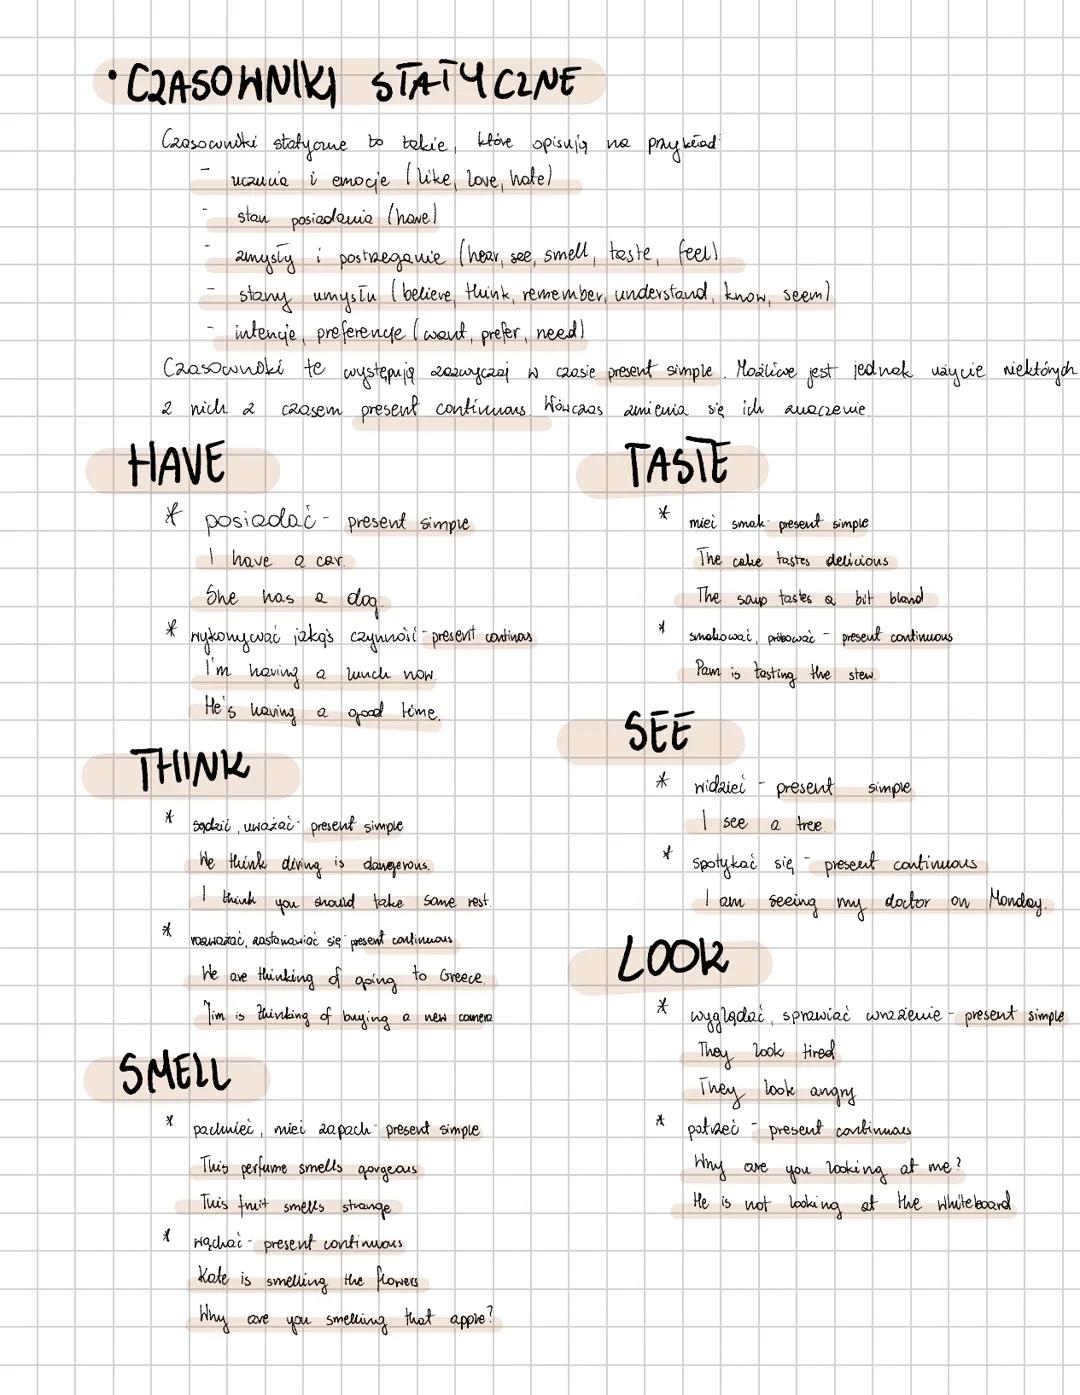 • CZASOWNIKI STATYCZNE
Czasowniki statyczne to takie, które opisują na przykład
- uczucia i emocje (like, love, hate)
- stan posiadania (have)
- zmysły i postrzeganie (hear, see, smell, taste, feel)
- stany umysłu (believe, think, remember, understand, know, seem)
- intencje, preferencje (want, prefer, need)
Czasowniki te występują zazwyczaj w czasie present simple. Możliwe jest jednak użycie niektórych
z nich z czasem present continuous. Wówczas zmienia się ich znaczenie.
HAVE
* posiadać - present simple
I have a car.
She has a dog.
* wykonywać jakąś czynność - present continous
I'm having a lunch now.
He's having a good time.
THINK
* sądzić, uważać - present simple
We think diving is dangerous.
I think you should take some rest.
* rozważać, zastanawiać się present continuous
We are thinking of going to Greece.
Tim is thinking of buying a new camera
SMELL
* pachnieć, mieć zapach - present simple
This perfume smells gorgeous
This fruit smells strange
* wąchać - present continuous
Kate is smelling the flowers
Why are you smelling that apple?
TASTE
* mieć smak - present simple
The cake tastes delicious
The soup tastes a bit bland
* smakować, próbować - present continuous
Pam is tasting the stew.
SEE
* widzieć - present simple
I see a tree.
* spotykać się - present continuous
I am seeing my doctor on Monday.
LOOK
* wyglądać, sprawiać wrażenie - present simple
They look tired
They look angry
* patrzeć - present continuous
Why are you looking at me?
He is not looking at the whiteboard